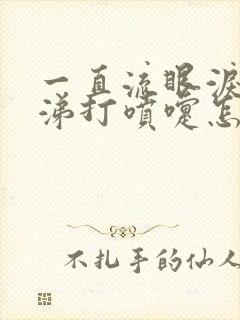 一直流眼淚
涕打噴嚏怎
不扎手的仙人